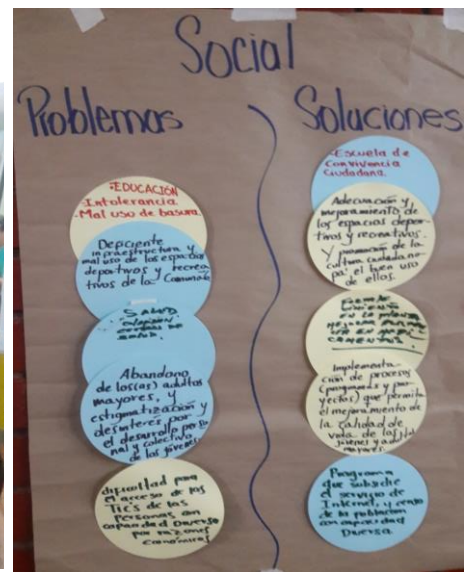 Social
Problemas
Soluciones
·EDUCACIÓN
·Intolerancia
-Mal uso de basura.
Deficiente
infraestructura y
mal uso de los espacios
deportivos y recrea
tivos de la Comuna
·SALUD
Abandono
de los(as) adultos
mayores, y
estigmatización y
desinteres por
el desarrollo perso
nal y colectivo
de los jóvenes.
dificultad para
el acceso de las
TICs de las
Personas con
capacidad Diversa
por razones
económicas
·Escuela de
Convivencia
Ciudadana
Adecuación y
mejoramiento de
los espacios depor
tivos y recreativos.
Y promoción de la
cultura ciudadana
pa' el buen uso
de ellos.
en la
mejorar
Implementa
ción de procesos
(programas y pro
yectos) que permita
el mejoramiento de
la calidad de
vida de
jóvenes y
mayores
Programa
que subsidie
el servicio de
Internet, y censo
de la población
con capacidad
Diversa.